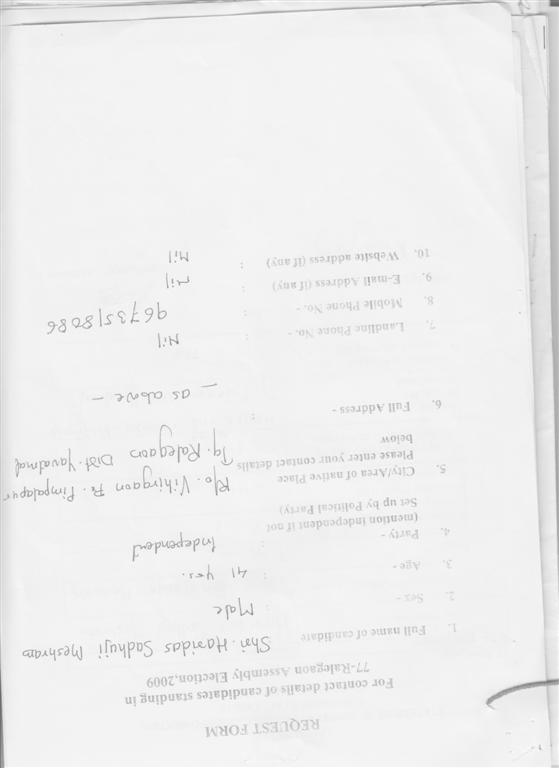 REQUEST FORM
For contact details of candidates standing in
77-Ralegaon Assembly Election,2009
1. Full name of candidate Shri. Haridas Sadhuji Meshram
2. Sex - : Male
3. Age - : 41 yrs.
4. Party - : Independent
(mention independent if not
Set up by Political Party)
5. City/Area of native Place R/o. Vihirgaon Po. Pimpalapur
Please enter your contact details Tq. Ralegaon Dist. Yavatmal
below
6. Full Address - : — as above —
7. Landline Phone No. - : Nil
8. Mobile Phone No. - : 9673518086
9. E-mail Address (if any) : Nil
10. Website address (if any) : Nil